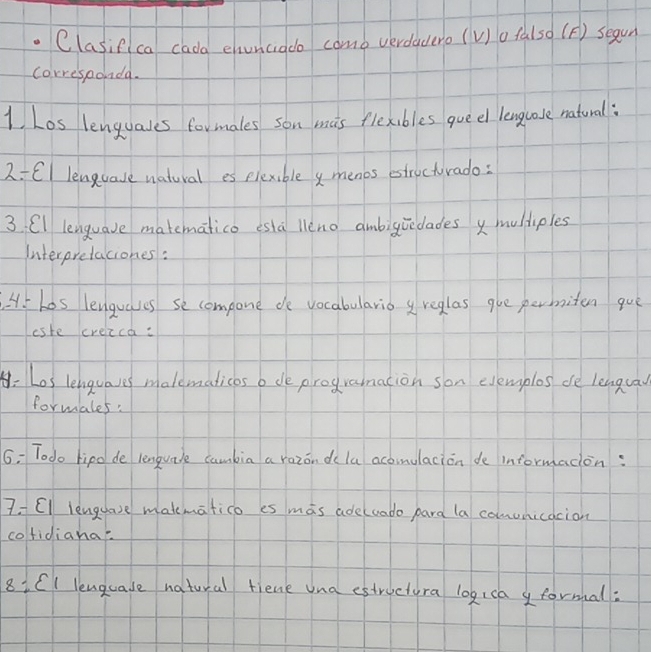 • Clasifica cada enunciado como verdadero (V) o falso (F) segun
corresponda.
1. Los lenguajes formales son más flexibles que el lenguaje natural:
2.- El lenguaje natural es flexible y menos estructurado:
3. El lenguaje matemático está lleno ambigüedades y multiples
Interpretaciones:
4.- Los lenguajes se compone de vocabulario y reglas que permiten que
este crezca:
4.- Los lenguajes matematicos o de programación son ejemplos de lenguaj
formales:
6.- Todo tipo de lenguaje cambia a razón de la acomulación de información:
7.- El lenguaje matemático es más adecuado para la comunicacion
cotidiana:
8.- El lenguaje natural tiene una estructura logica y formal: